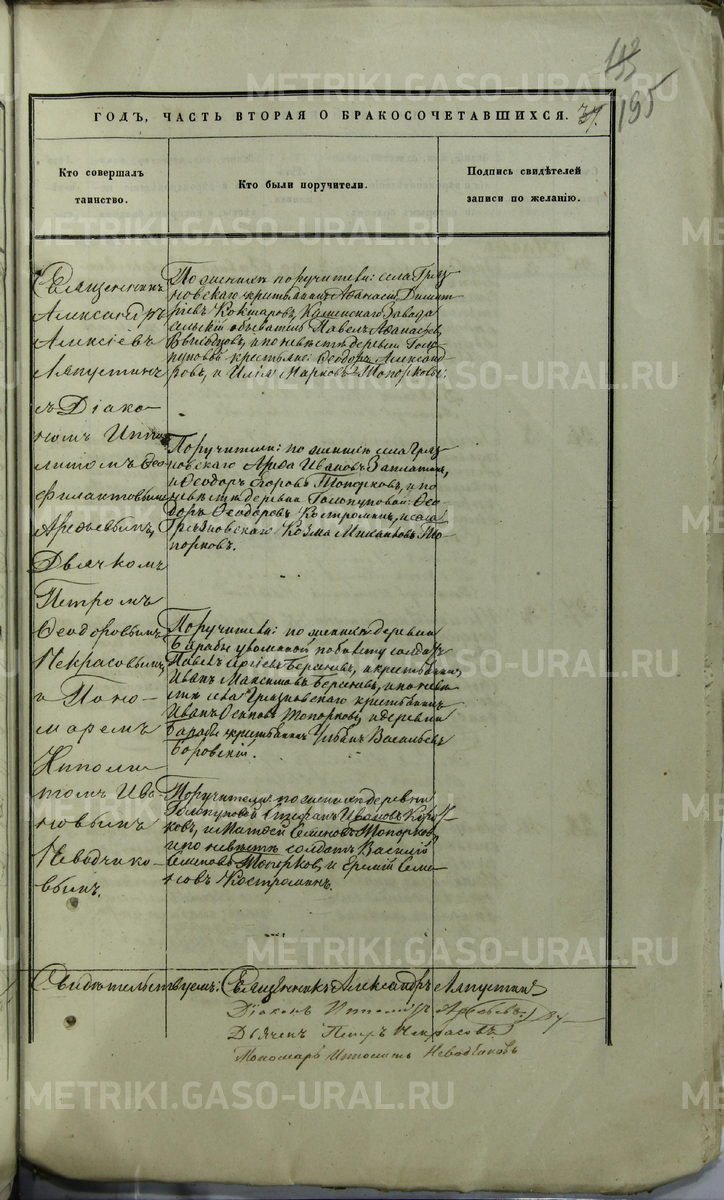 195
ГОДЪ, ЧАСТЬ ВТОРАЯ О БРАКОСОЧЕТАВШИХСЯ.
Кто совершалъ
таинство.
Кто были поручители.
Подпись свидѣтелей
записи по желанію.
Священникъ
Александръ
Алексіевъ
Ляпустинъ
съ Діако-
номъ Иппо-
литомъ Фео-
филактовымъ
Арефьевымъ,
Дьячкомъ
Петромъ
Феодоровымъ
Некрасовымъ,
и Поно-
маремъ
Ипполи-
томъ Ива-
новымъ
Неводчико-
вымъ.
По женихѣ поручители: села Гряз-
новскаго крестьянинъ Афанасій Димит-
ріевъ Кокшаровъ, Каменскаго Завода
обыватель Павелъ Афанасьевъ
и по невѣстѣ деревни Голо-
пуповой крестьяне: Феодоръ Александ-
ровъ, и Илія Марковъ Топорковы.
Поручители: по женихѣ села Гряз-
новскаго Иванов Заплатинъ,
и Феодоръ Топорковъ, и по
невѣстѣ деревни Голопуповой: Фео-
доръ Феодоровъ Костроминъ, и села
Грязновскаго Козма Михаиловъ То-
порковъ.
Поручители: по женихѣ деревни
Барабы уволенной по билету солдатъ
Павелъ и крестьянинъ
Иванъ Максимовъ и по невѣ-
стѣ села Грязновскаго крестьянинъ
Иванъ Осиповъ Топорковъ, и деревни
Барабы крестьянинъ Васильевъ
Боровскій.
Поручители по женихѣ деревни
Голопуповой Стефанъ Ивановъ
ковъ, и Матѳей Семеновъ Топорковъ,
и по невѣстѣ солдатъ Василій
Семеновъ Топорковъ, и Еремій Семе-
новъ Костроминъ.
Свидѣтельствуемъ: Священникъ Александръ Ляпустинъ
Діаконъ Ипполитъ Арефьевъ
Дьячекъ Петръ Некрасовъ
Пономарь Ипполитъ Неводчиковъ
METRIKI.GASO-URAL.RU